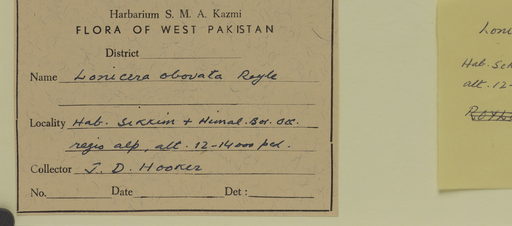 Harbarium S. M. A. Kazmi
FLORA OF WEST PAKISTAN
District
Name Lonicera obovata Royle
Locality Hab. Sikkim + Himal. Bor. Occ.
regio alp, alt. 12-14000 ped.
Collector J. D. Hooker
No. Date Det :
Loni
Hab. Sik
alt. 12-